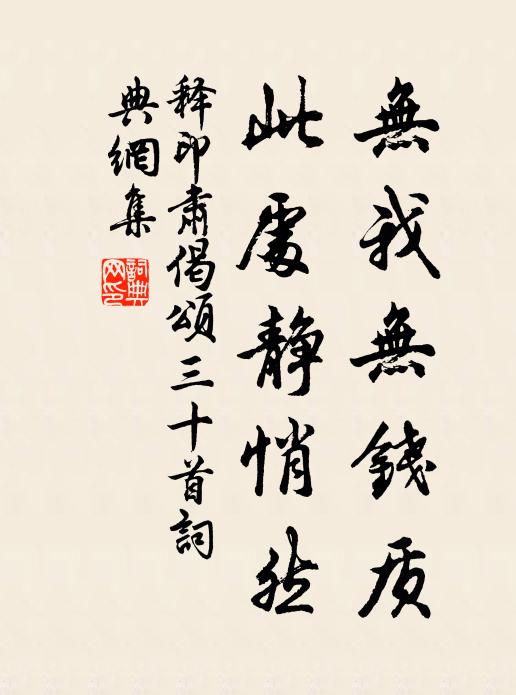 無我無錢质
此處静悄然
释印肃偈頌三十首詞
典網集
詞典網印